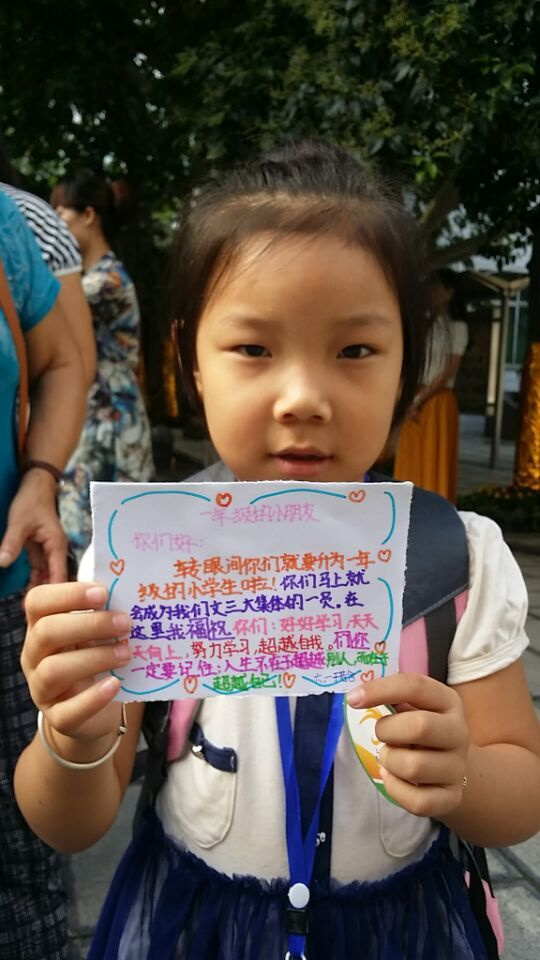 一年级的小朋友
你们好:
转眼间你们就要升为一年
级的小学生啦!你们马上就
会成为我们文三大集体的一员。在
这里我福祝你们:好好学习,天天
天向上,努力学习,超越自我。们你
一定要记住:人生不在于超越别人,而在于
超越自己!六一